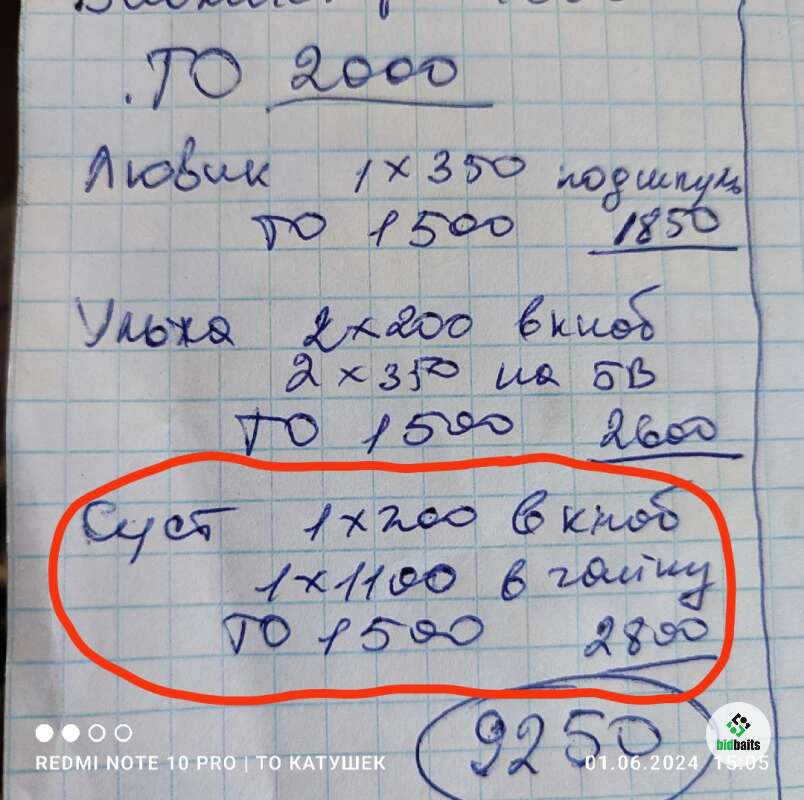 ТО 2000
Лювик 1 х 350 подшпуль
ТО 1500 1850
Ульха 2 х 200 в кноб
2 х 350 на БВ
ТО 1500 2600
Суст 1 х 200 в кноб
1 х 1100 в гайку
ТО 1500 2800
9250
bidbaits
REDMI NOTE 10 PRO | ТО КАТУШЕК 01.06.2024 15:05